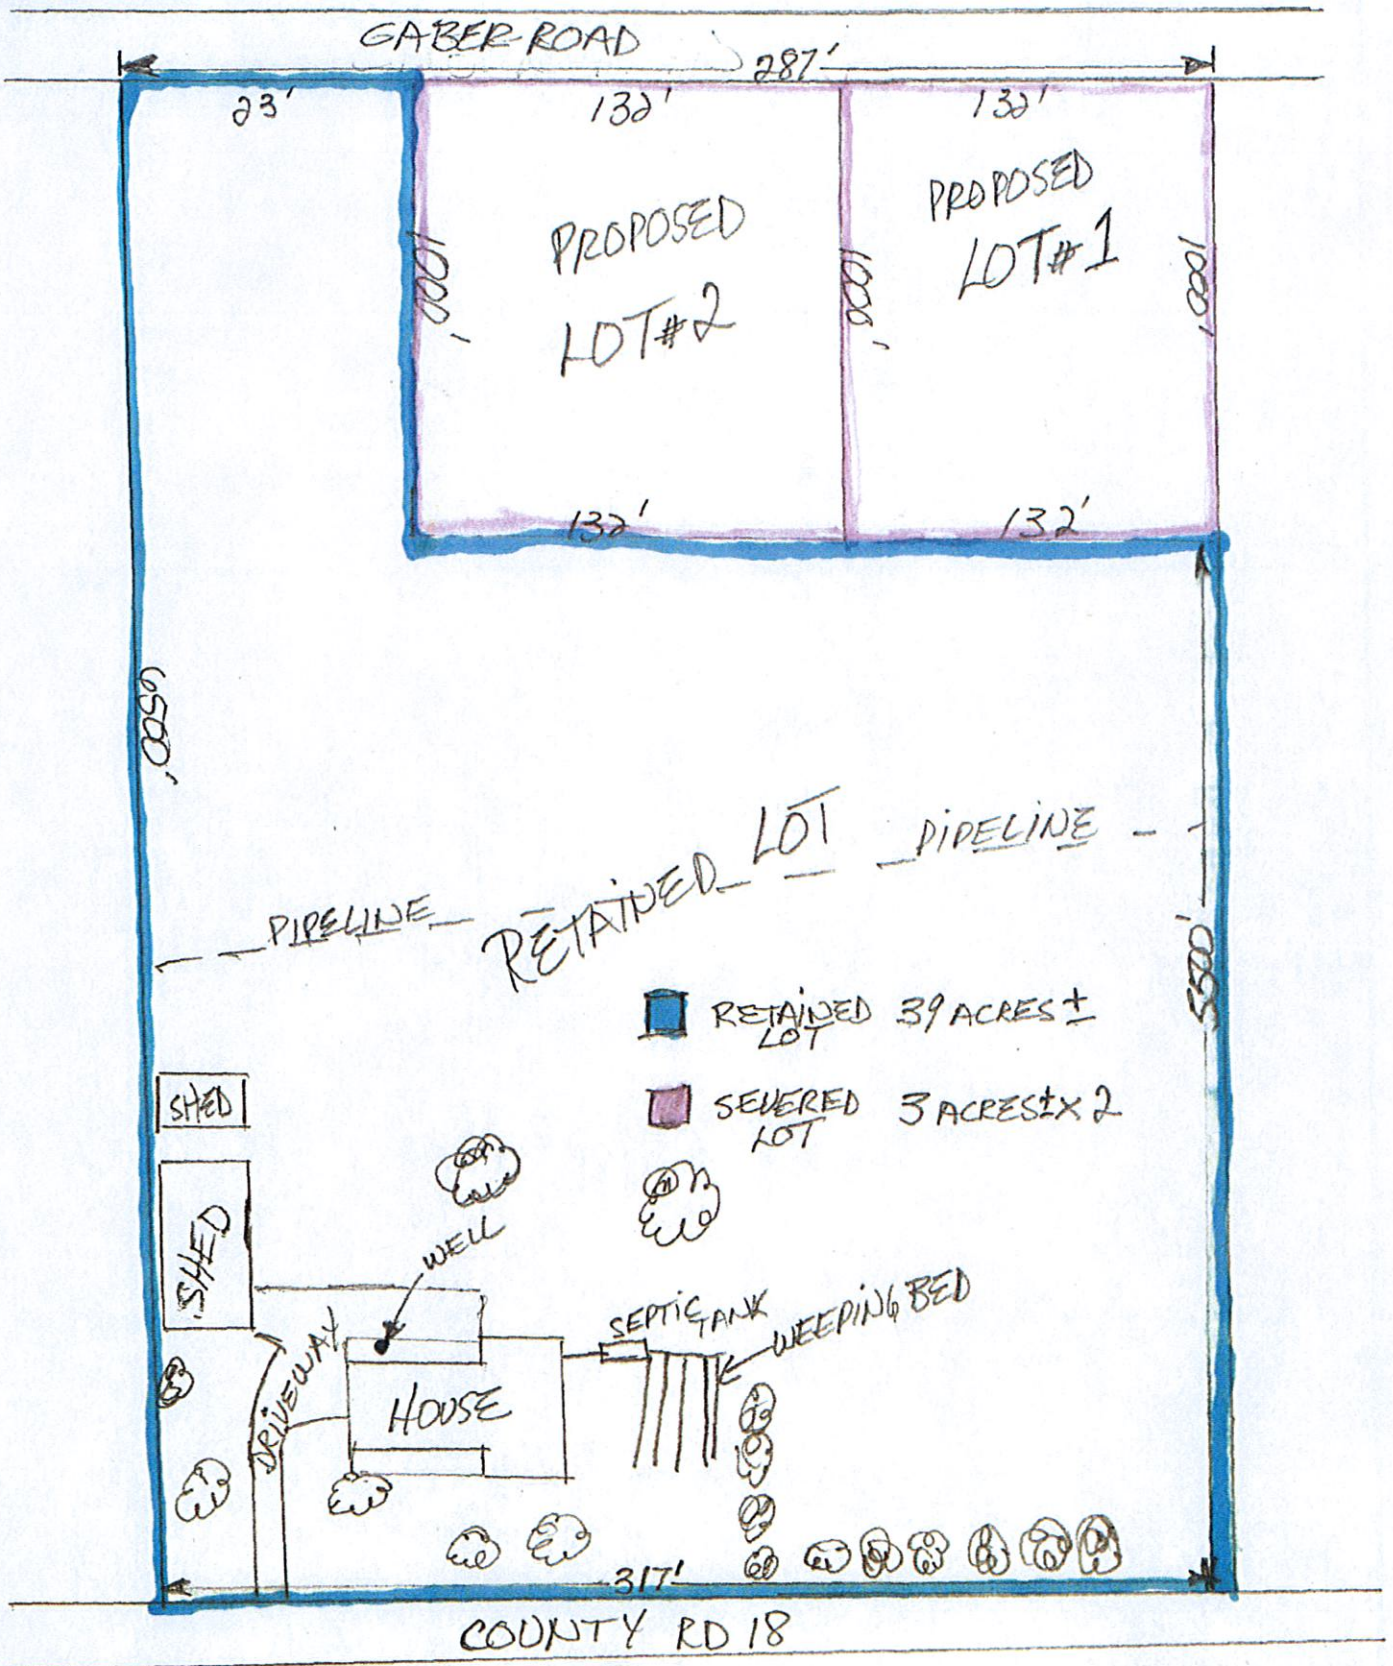 GABER ROAD
287'
23'
132'
132'
PROPOSED
LOT#2
PROPOSED
LOT#1
1000'
1000'
1000'
132'
132'
6500'
RETAINED LOT
PIPELINE
PIPELINE
5500'
RETAINED LOT 39 ACRES ±
SEVERED LOT 3 ACRES± X 2
SHED
SHED
WELL
SEPTIC TANK
WEEPING BED
DRIVEWAY
HOUSE
317'
COUNTY RD 18